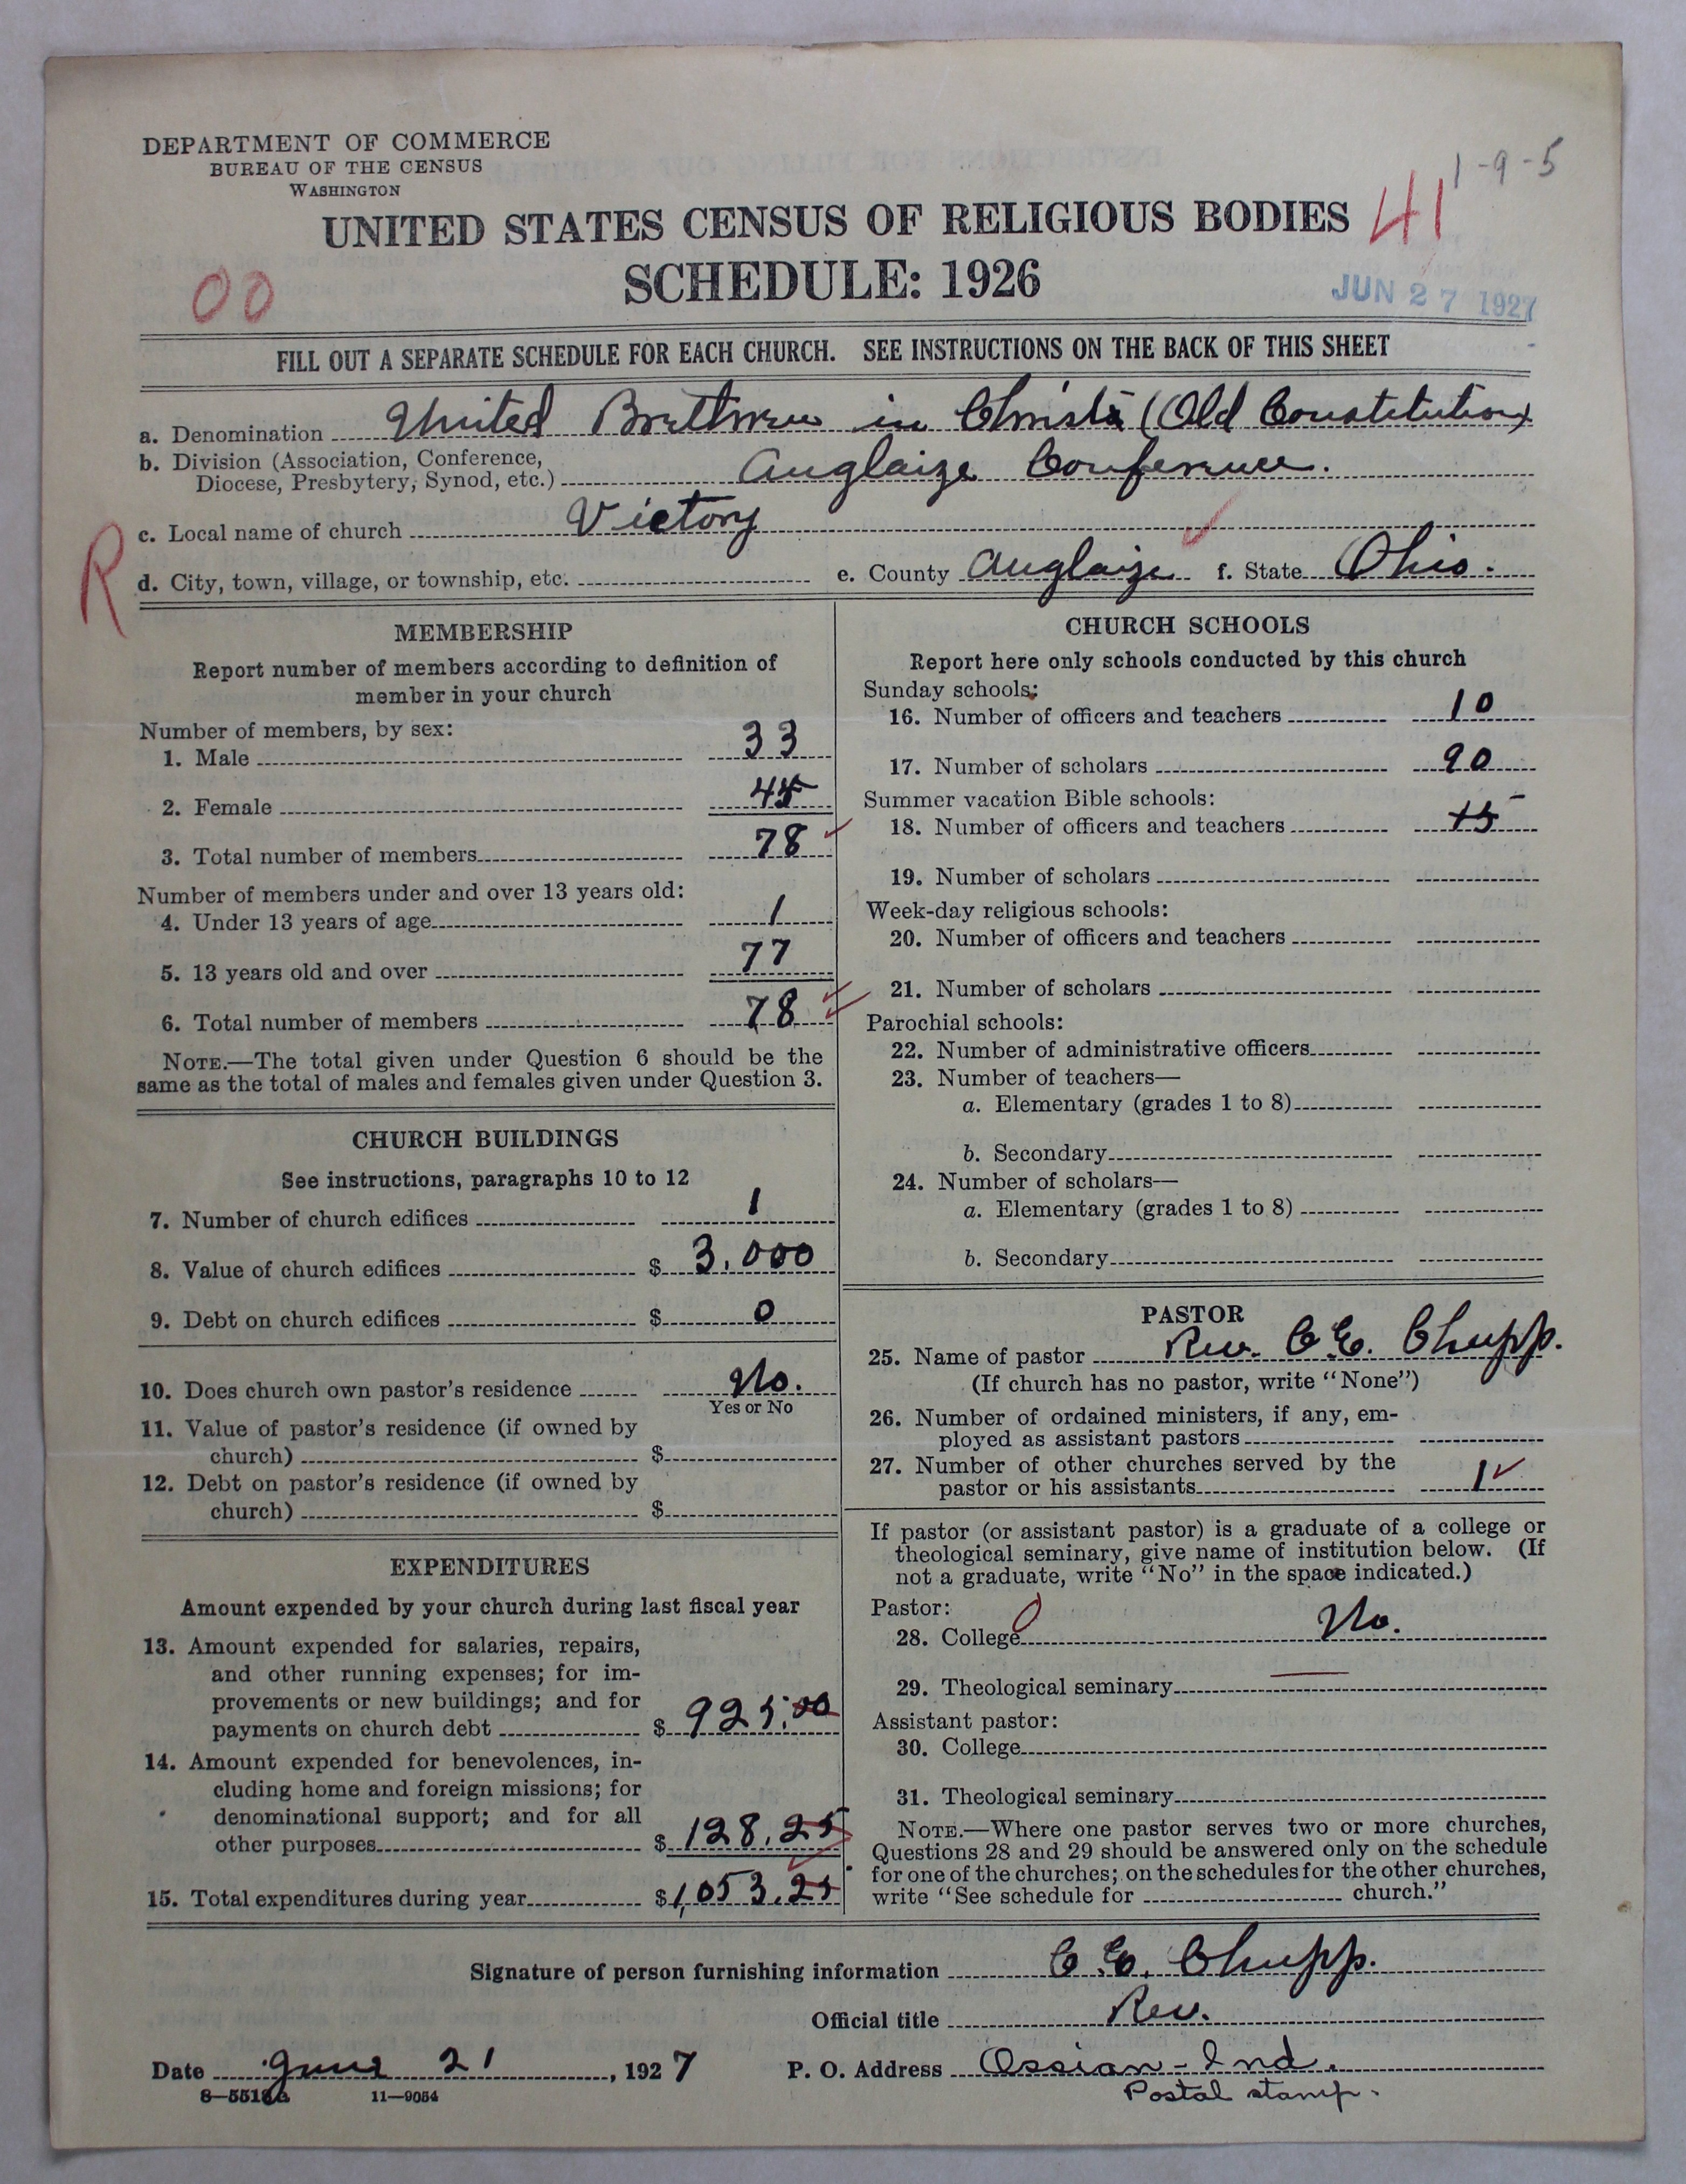 DEPARTMENT OF COMMERCE
BUREAU OF THE CENSUS
WASHINGTON
1-9-5
UNITED STATES CENSUS OF RELIGIOUS BODIES
41
SCHEDULE: 1926
00
JUN 27 1927
FILL OUT A SEPARATE SCHEDULE FOR EACH CHURCH. SEE INSTRUCTIONS ON THE BACK OF THIS SHEET
a. Denomination United Brethren in Christ (Old Constitution)
b. Division (Association, Conference,
Diocese, Presbytery, Synod, etc.) Auglaize Conference.
c. Local name of church Victory
R
d. City, town, village, or township, etc. e. County Auglaize f. State Ohio.
MEMBERSHIP
Report number of members according to definition of
member in your church
Number of members, by sex:
1. Male 33
2. Female 45
3. Total number of members 78
Number of members under and over 13 years old:
4. Under 13 years of age 1
5. 13 years old and over 77
6. Total number of members 78
NOTE.—The total given under Question 6 should be the
same as the total of males and females given under Question 3.
CHURCH BUILDINGS
See instructions, paragraphs 10 to 12
7. Number of church edifices 1
8. Value of church edifices $ 3,000
9. Debt on church edifices $ 0
10. Does church own pastor's residence No.
Yes or No
11. Value of pastor's residence (if owned by
church) $
12. Debt on pastor's residence (if owned by
church) $
EXPENDITURES
Amount expended by your church during last fiscal year
13. Amount expended for salaries, repairs,
and other running expenses; for im-
provements or new buildings; and for
payments on church debt $ 925.00
14. Amount expended for benevolences, in-
cluding home and foreign missions; for
denominational support; and for all
other purposes $ 128.25
15. Total expenditures during year $ 1,053.25
CHURCH SCHOOLS
Report here only schools conducted by this church
Sunday schools:
16. Number of officers and teachers 10
17. Number of scholars 90
Summer vacation Bible schools:
18. Number of officers and teachers
19. Number of scholars
Week-day religious schools:
20. Number of officers and teachers
21. Number of scholars
Parochial schools:
22. Number of administrative officers
23. Number of teachers—
a. Elementary (grades 1 to 8)
b. Secondary
24. Number of scholars—
a. Elementary (grades 1 to 8)
b. Secondary
PASTOR
25. Name of pastor Rev. C.E. Chupp.
(If church has no pastor, write "None")
26. Number of ordained ministers, if any, em-
ployed as assistant pastors
27. Number of other churches served by the
pastor or his assistants 1
If pastor (or assistant pastor) is a graduate of a college or
theological seminary, give name of institution below. (If
not a graduate, write "No" in the space indicated.)
Pastor:
28. College No.
29. Theological seminary
Assistant pastor:
30. College
31. Theological seminary
NOTE.—Where one pastor serves two or more churches,
Questions 28 and 29 should be answered only on the schedule
for one of the churches; on the schedules for the other churches,
write "See schedule for church."
Signature of person furnishing information C.E. Chupp.
Official title Rev.
Date June 21, 1927 P. O. Address Ossian-Ind.
8—5518a 11—9054 Postal stamp.